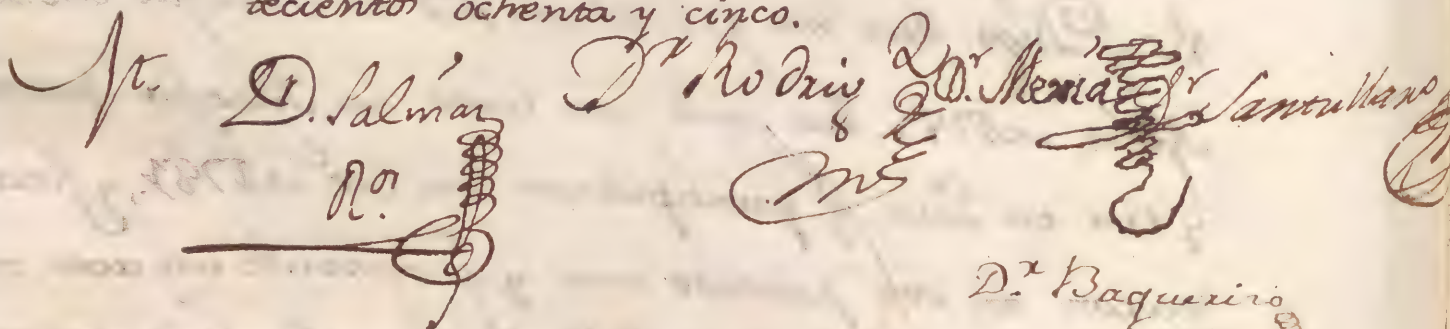 tecientos ochenta y cinco.
D. Salmar D.r Rodrig D.r Mexia D.r Santullano
R.or
D.r Baqueriro